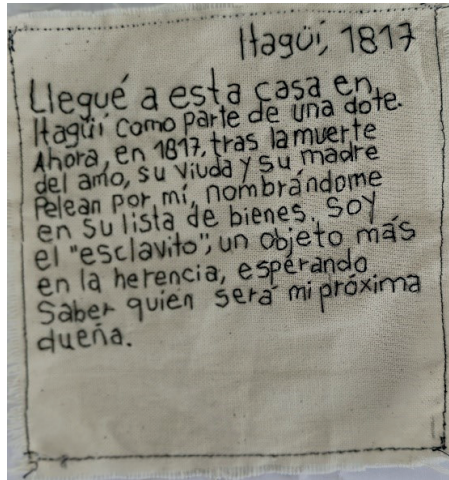 Itagüí, 1817
Llegué a esta casa en
Itagüí como parte de una dote.
Ahora, en 1817, tras la muerte
del amo, su viuda y su madre
Pelean por mí, nombrándome
en su lista de bienes. Soy
el "esclavito", un objeto más
en la herencia, esperando
Saber quién será mi próxima
dueña.